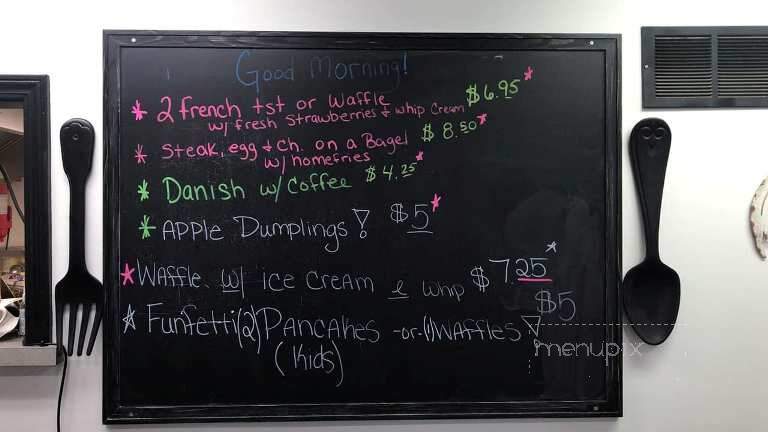 Good Morning!
* 2 french tst or Waffle $6.95*
w/ fresh strawberries & whip Cream
* Steak, egg & ch. on a Bagel $8.50*
w/ homefries
* Danish w/ Coffee $4.25*
* Apple Dumplings! $5*
* Waffle w/ ice cream & whip $7.25*
* Funfetti (2) Pancakes -or- (1) Waffles! $5
(Kids)
menupix